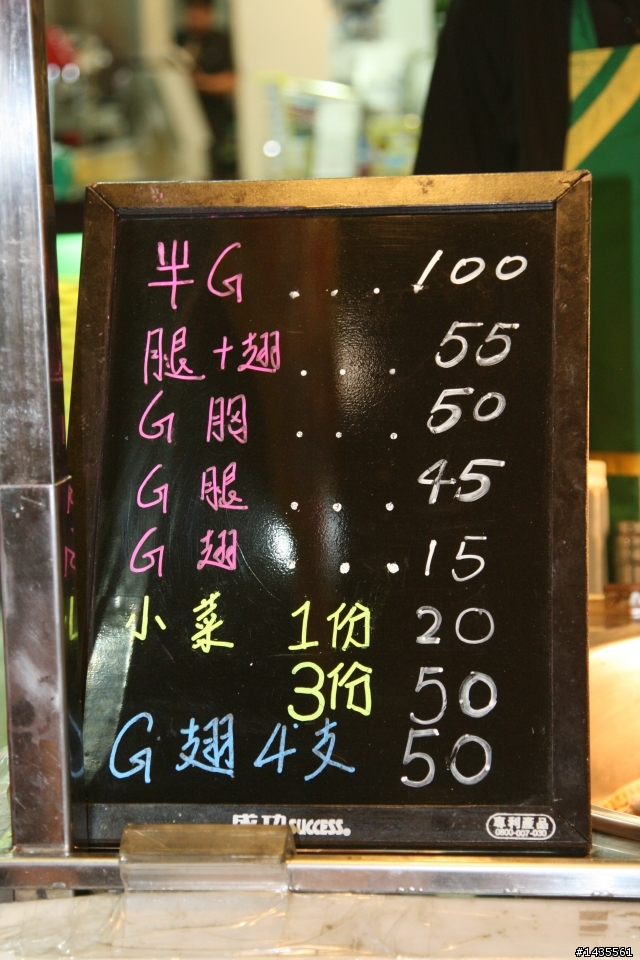 半G ... 100
腿+翅 ... 55
G 胸 ... 50
G 腿 ... 45
G 翅 ... 15
小菜 1份 20
3份 50
G 翅 4支 50
成功 SUCCESS®
專利產品
0800-007-030
#1435561